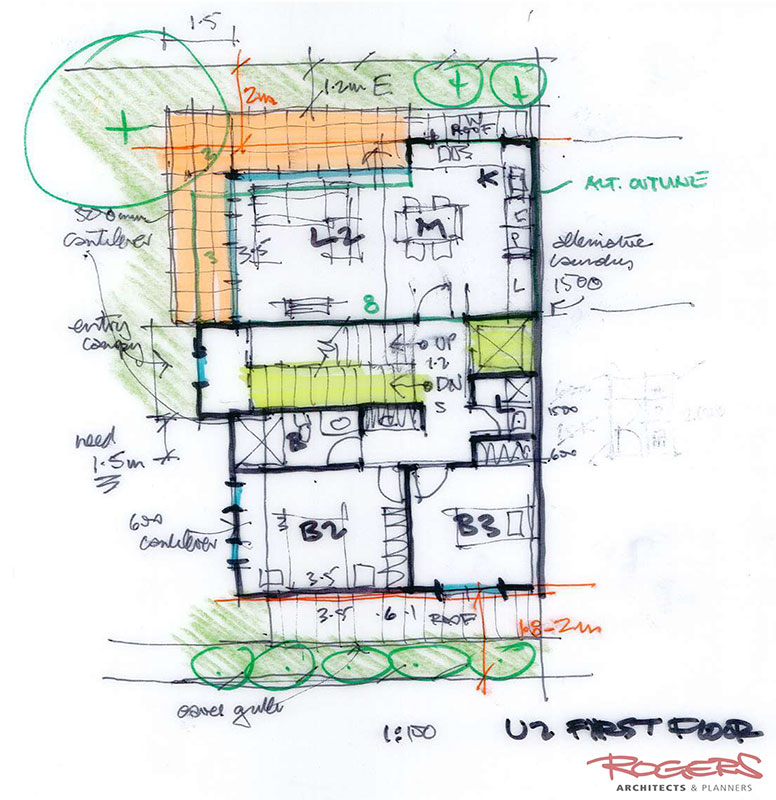 1.5
2m
1.2m E
W
ROOF
K
ALT. OUTLINE
3
500mm
cantilever
L2
M
F
P
alternative
laundry
1500
3.5
3
L
8
entry
canopy
UP
1.2
DN
S
L
1500
need
1.5m
B
600
600
cantilever
3
B2
B3
3.5
3.5 .6 .1
ROOF
1.8-2m
eaves gutter
1:100
U2 FIRST FLOOR
ROGERS
ARCHITECTS & PLANNERS